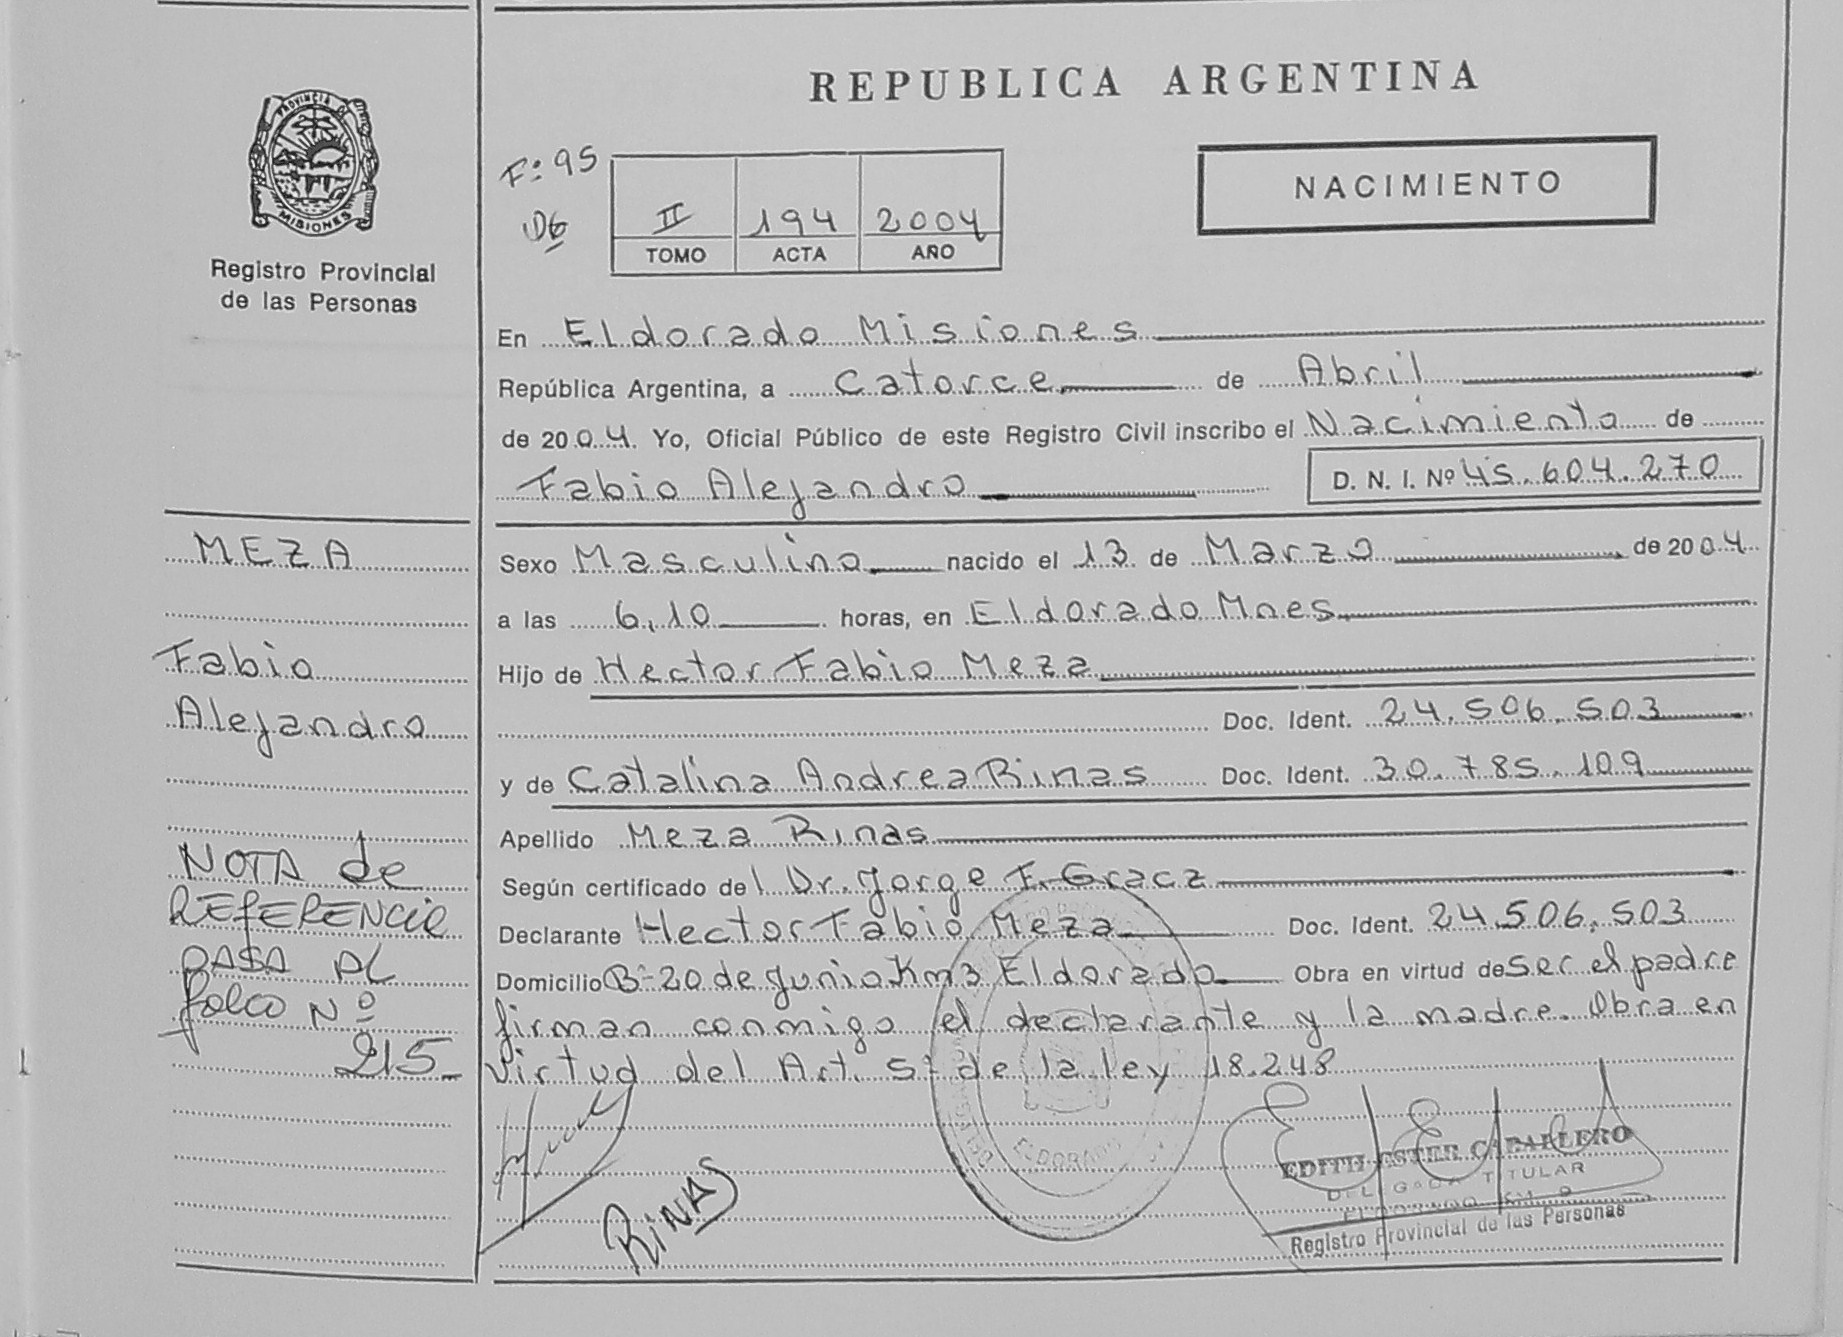 REPUBLICA ARGENTINA
PROVINCIA DE
MISIONES
Registro Provincial
de las Personas
F: 95
NACIMIENTO
II 194 2004
TOMO ACTA AÑO
En Eldorado Misiones
República Argentina, a Catorce de Abril
de 2004. Yo, Oficial Público de este Registro Civil inscribo el Nacimiento de
Fabio Alejandro D. N. I. Nº 45.604.270
MEZA
Fabio
Alejandro
NOTA de
REFERENCIA
PASA AL
folio Nº
215
Sexo Masculino nacido el 13 de Marzo de 2004
a las 6,10 horas, en Eldorado Mnes
Hijo de Hector Fabio Meza
Doc. Ident. 24.506.503
y de Catalina Andrea Rinas Doc. Ident. 30.785.109
Apellido Meza Rinas
Según certificado del Dr. Jorge F. Gracz
Declarante Hector Fabio Meza Doc. Ident. 24.506.503
Domicilio Bº 20 de Junio Km3 Eldorado Obra en virtud de ser el padre
firman conmigo el declarante y la madre. Obra en
virtud del Art. 5º de la ley 18.248
RINAS
ELDORADO
EDITH ESTER CABALLERO
DELEGADA TITULAR
ELDORADO KM 9
Registro Provincial de las Personas